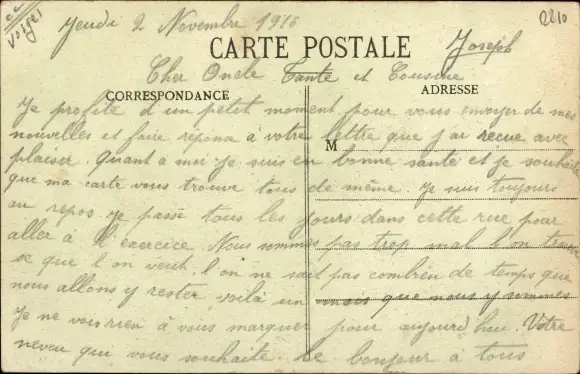 Vosges
2210
Jeudi 2 Novembre 1916
CARTE POSTALE
Joseph
Cher Oncle Tante et Cousine
CORRESPONDANCE
ADRESSE
Je profite d'un petit moment pour vous envoyer de mes
nouvelles et faire répons à votre lettre que j'ai recue avec
M
plaisir. Quant a moi je suis en bonne santé et je souhaite
que ma carte vous trouve tous de même. Je suis toujours
au repos je passe tous les jours dans cette rue pour
aller à l'exercice. Nous sommes pas trop mal l'on trouve
se que l'on veut. l'on ne sait pas combien de temps que
nous allons y rester voilà un mois que nous y sommes
Je ne vois rien à vous marquer pour aujourd'hui. Votre
neveu qui vous souhaite le bonjour à tous